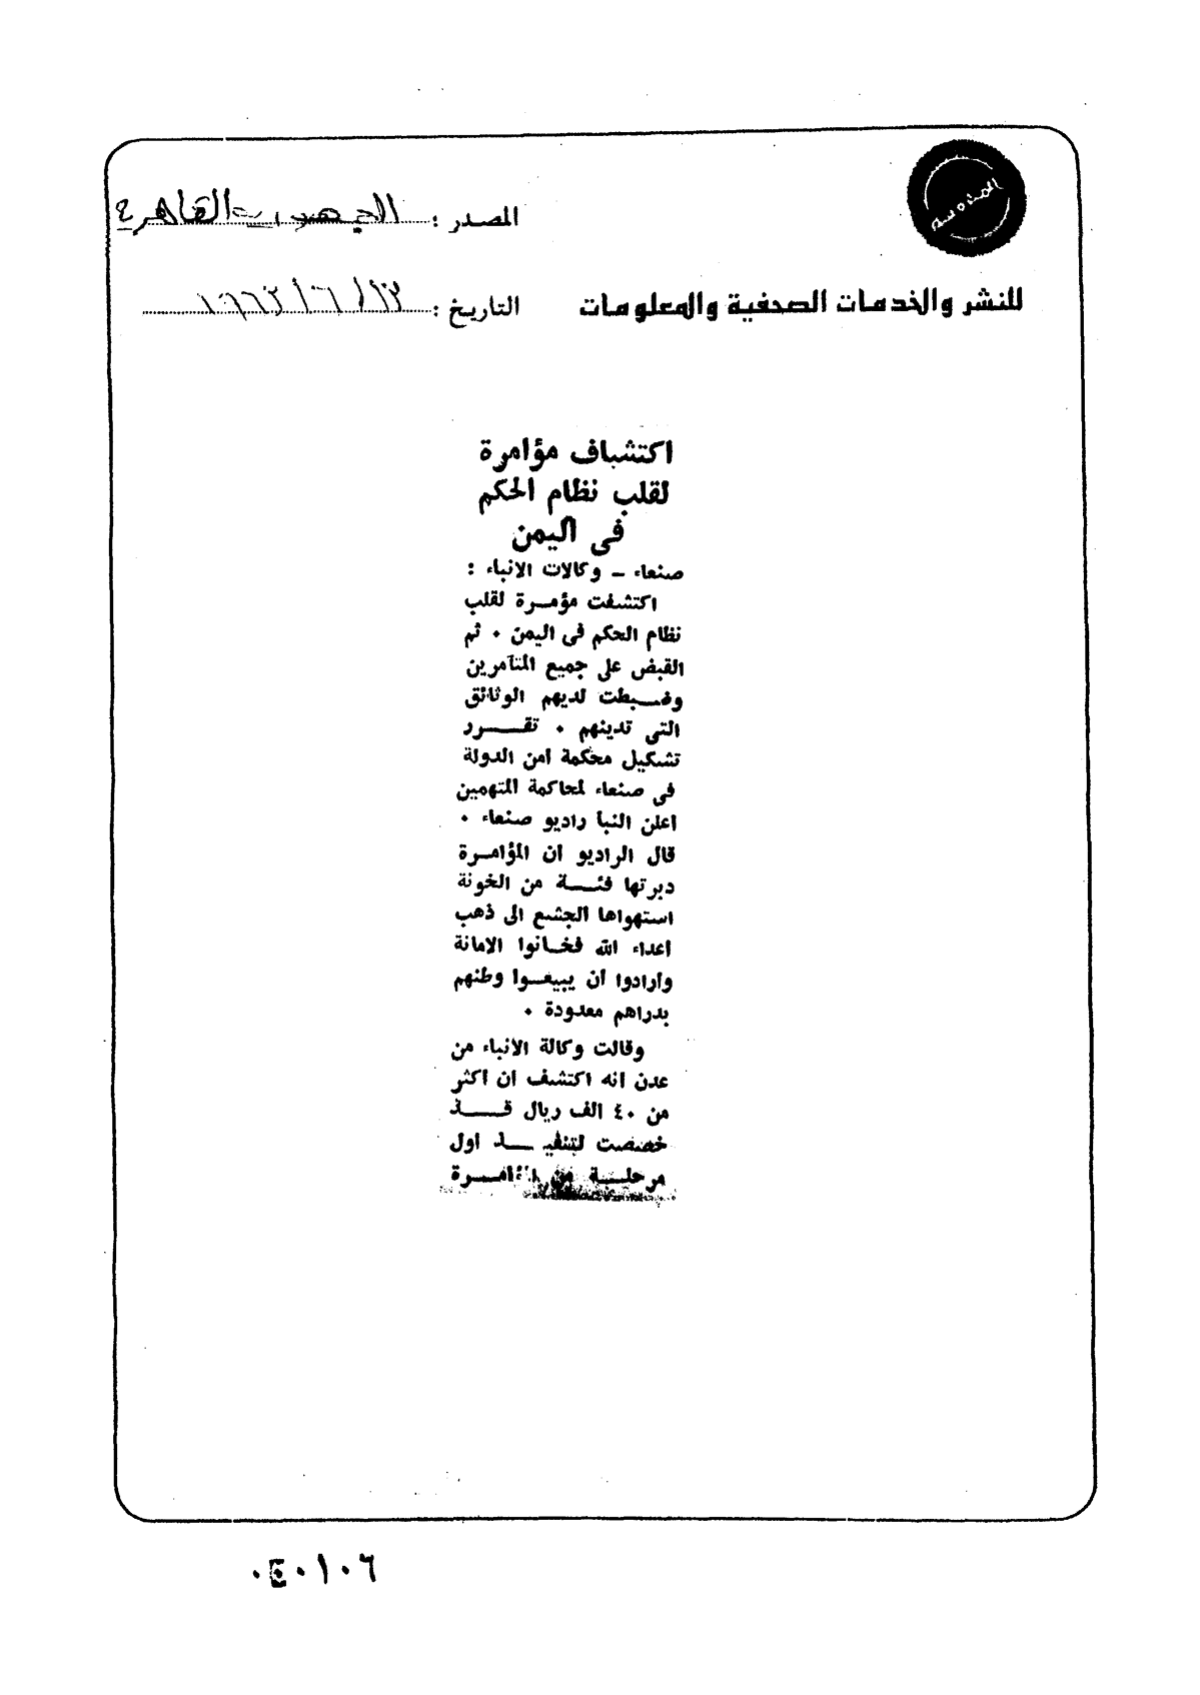 المصدر : الجمهورية القاهرية
للنشر والخدمات الصحفية والمعلومات
التاريخ : ١٩٦٣/٦/١٣
اكتشاف مؤامرة
لقلب نظام الحكم
فى اليمن
صنعاء ـ وكالات الانباء :
اكتشفت مؤمرة لقلب
نظام الحكم فى اليمن ٠ ثم
القبض على جميع المتآمرين
وضبطت لديهم الوثائق
التى تدينهم ٠ تقرر
تشكيل محكمة امن الدولة
فى صنعاء لمحاكمة المتهمين
اعلن النبأ راديو صنعاء ٠
قال الراديو ان المؤامرة
دبرتها فئة من الخونة
استهواها الجشع الى ذهب
اعداء الله فخانوا الامانة
وأرادوا ان يبيعوا وطنهم
بدراهم معدودة ٠
وقالت وكالة الانباء من
عدن انه اكتشف ان اكثر
من ٤٠ الف ريال قد
خصصت لتنفيذ اول
مرحلة من المؤامرة